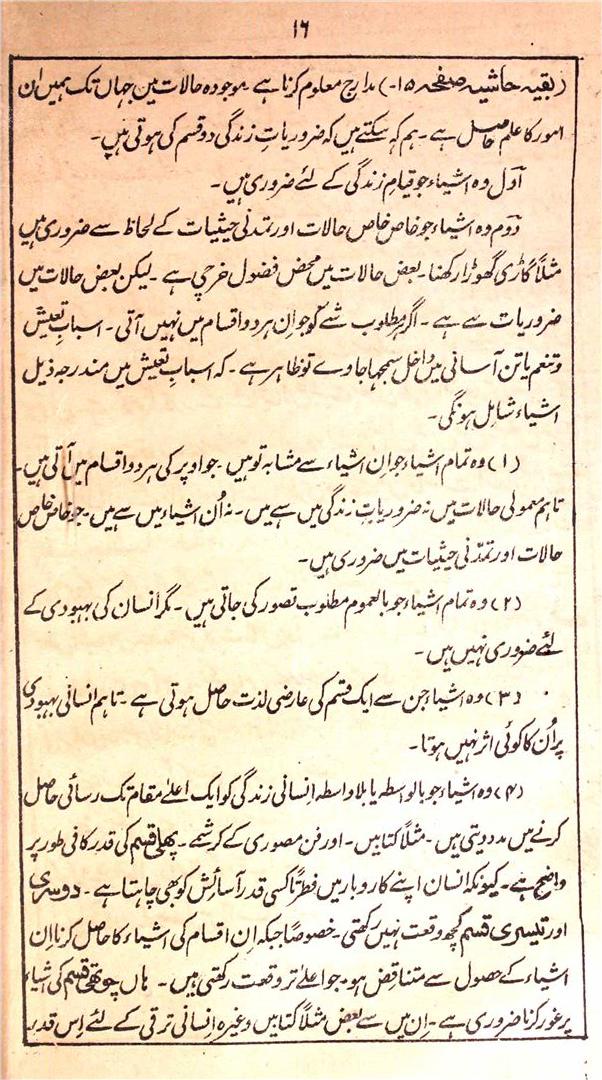 ۱۶
(بقیہ حاشیہ صفحہ ۱۵-) مدارج معلوم کرنا ہے۔ موجودہ حالات میں جہاں تک ہمیں ان
امور کا علم حاصل ہے۔ ہم کہہ سکتے ہیں کہ ضروریاتِ زندگی دو قسم کی ہوتی ہیں۔
اوّل وہ اشیاء جو قیامِ زندگی کے لئے ضروری ہیں۔
دوّم وہ اشیاء جو خاص خاص حالات اور تمدنی حیثیات کے لحاظ سے ضروری ہیں
مثلاً گاڑی گھوڑا رکھنا۔ بعض حالات میں محض فضول خرچی ہے۔ لیکن بعض حالات میں
ضروریات سے ہے۔ اگر ہر مطلوب شے کو جو اِن ہر دو اقسام میں نہیں آتی۔ اسبابِ تعیش
و تنعم یا تن آسانی میں داخل سمجھا جاوے تو ظاہر ہے۔ کہ اسبابِ تعیش میں مندرجہ ذیل
اشیاء شامل ہونگی۔
(۱) وہ تمام اشیاء جو اِن اشیاء سے مشابہ تو ہیں۔ جو اوپر کی ہر دو اقسام میں آتی ہیں۔
تاہم معمولی حالات میں نہ ضروریاتِ زندگی میں سے ہیں۔ نہ اُن اشیاء میں سے ہیں۔ جو خاص خاص
حالات اور تمدّنی حیثیات میں ضروری ہیں۔
(۲) وہ تمام اشیاء جو بالعموم مطلوب تصور کی جاتی ہیں۔ مگر انسان کی بہبودی کے
لئے ضروری نہیں ہیں۔
(۳) وہ اشیاء جن سے ایک قسم کی عارضی لذت حاصل ہوتی ہے۔ تاہم انسانی بہبودی
پر اُن کا کوئی اثر نہیں ہوتا۔
(۴) وہ اشیاء جو بالواسطہ یا بلاواسطہ اِنسانی زندگی کو ایک اعلےٰ مقام تک رسائی حاصل
کرنے میں مدد دیتی ہیں۔ مثلاً کتابیں۔ اور فنِ مصوری کے کرشمے۔ پہلی قسم کی قدر کافی طور پر
واضح ہے۔ کیونکہ انسان اپنے کاروبار میں فطرتاً کسی قدر آسائش کو بھی چاہتا ہے۔ دوسری
اور تیسری قسم کچھ وقعت نہیں رکھتی۔ خصوصاً جبکہ اِن اقسام کی اشیاء کا حاصل کرنا اِن
اشیاء کے حصول سے متناقض ہو۔ جو اعلےٰ تر وقعت رکھتی ہیں۔ ہاں چوتھی قسم کی اشیاء
پر غور کرنا ضروری ہے۔ اِن میں سے بعض مثلاً کتابیں وغیرہ اِنسانی ترقی کے لئے اِس قدر